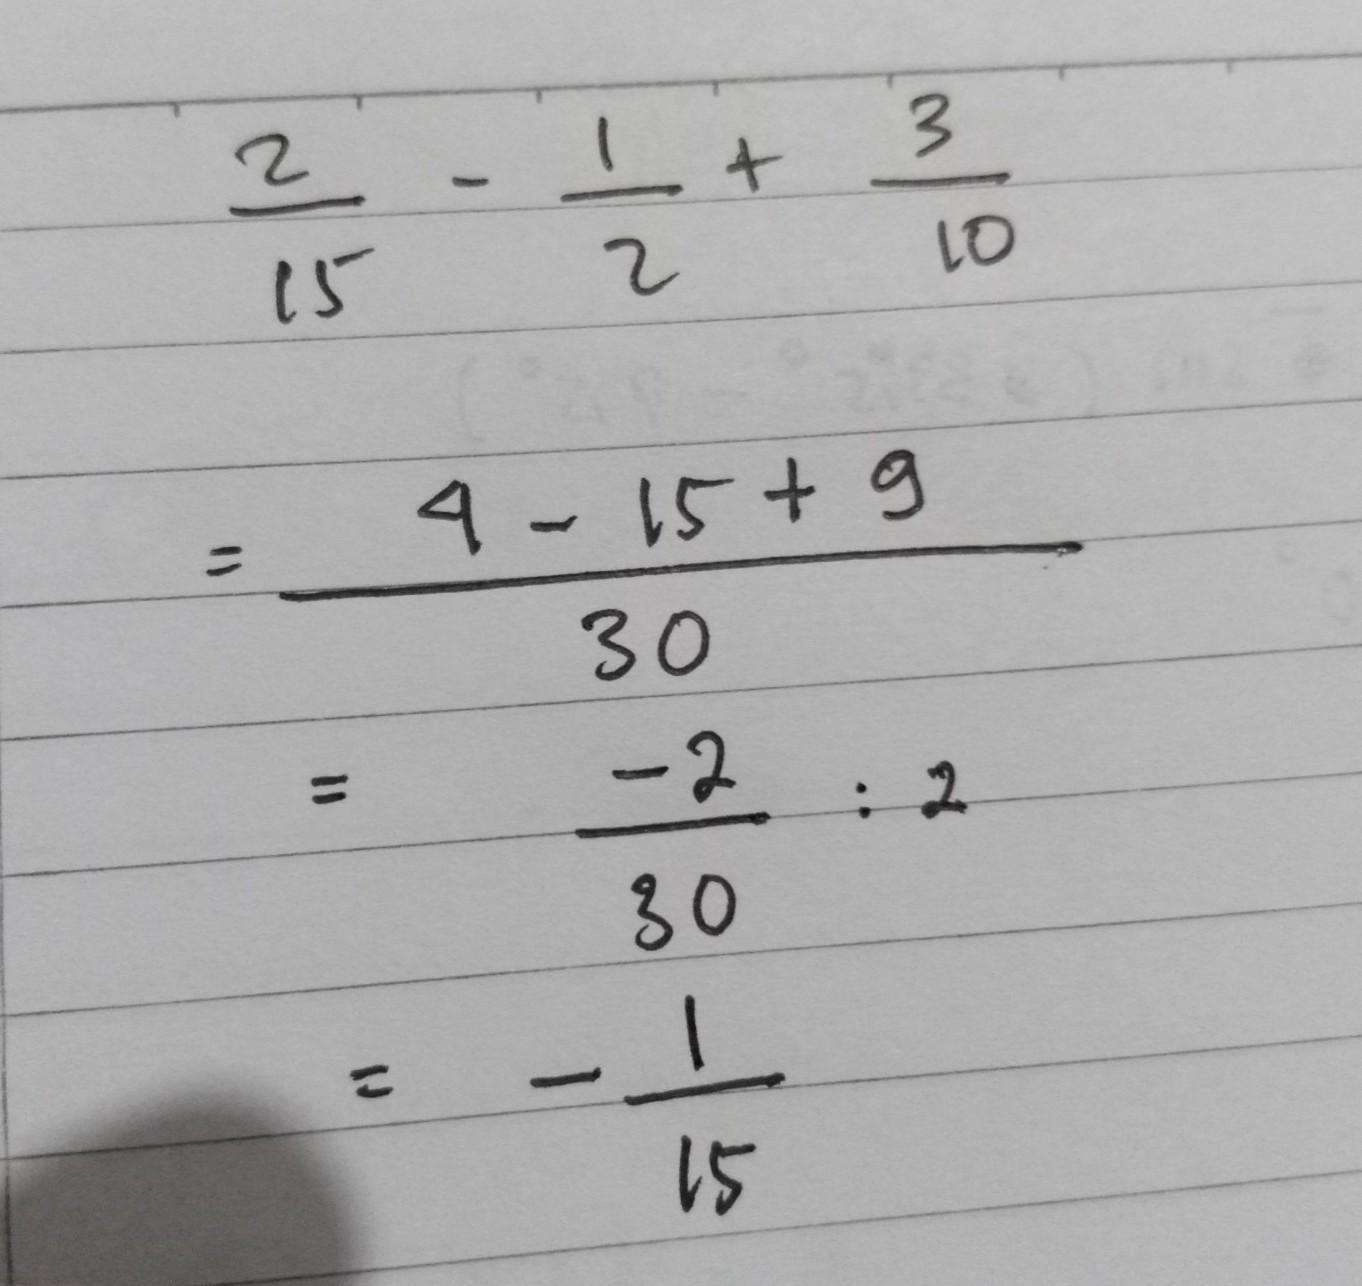 2/15 - 1/2 + 3/10
= (4 - 15 + 9)/30
= -2/30 : 2
= - 1/15